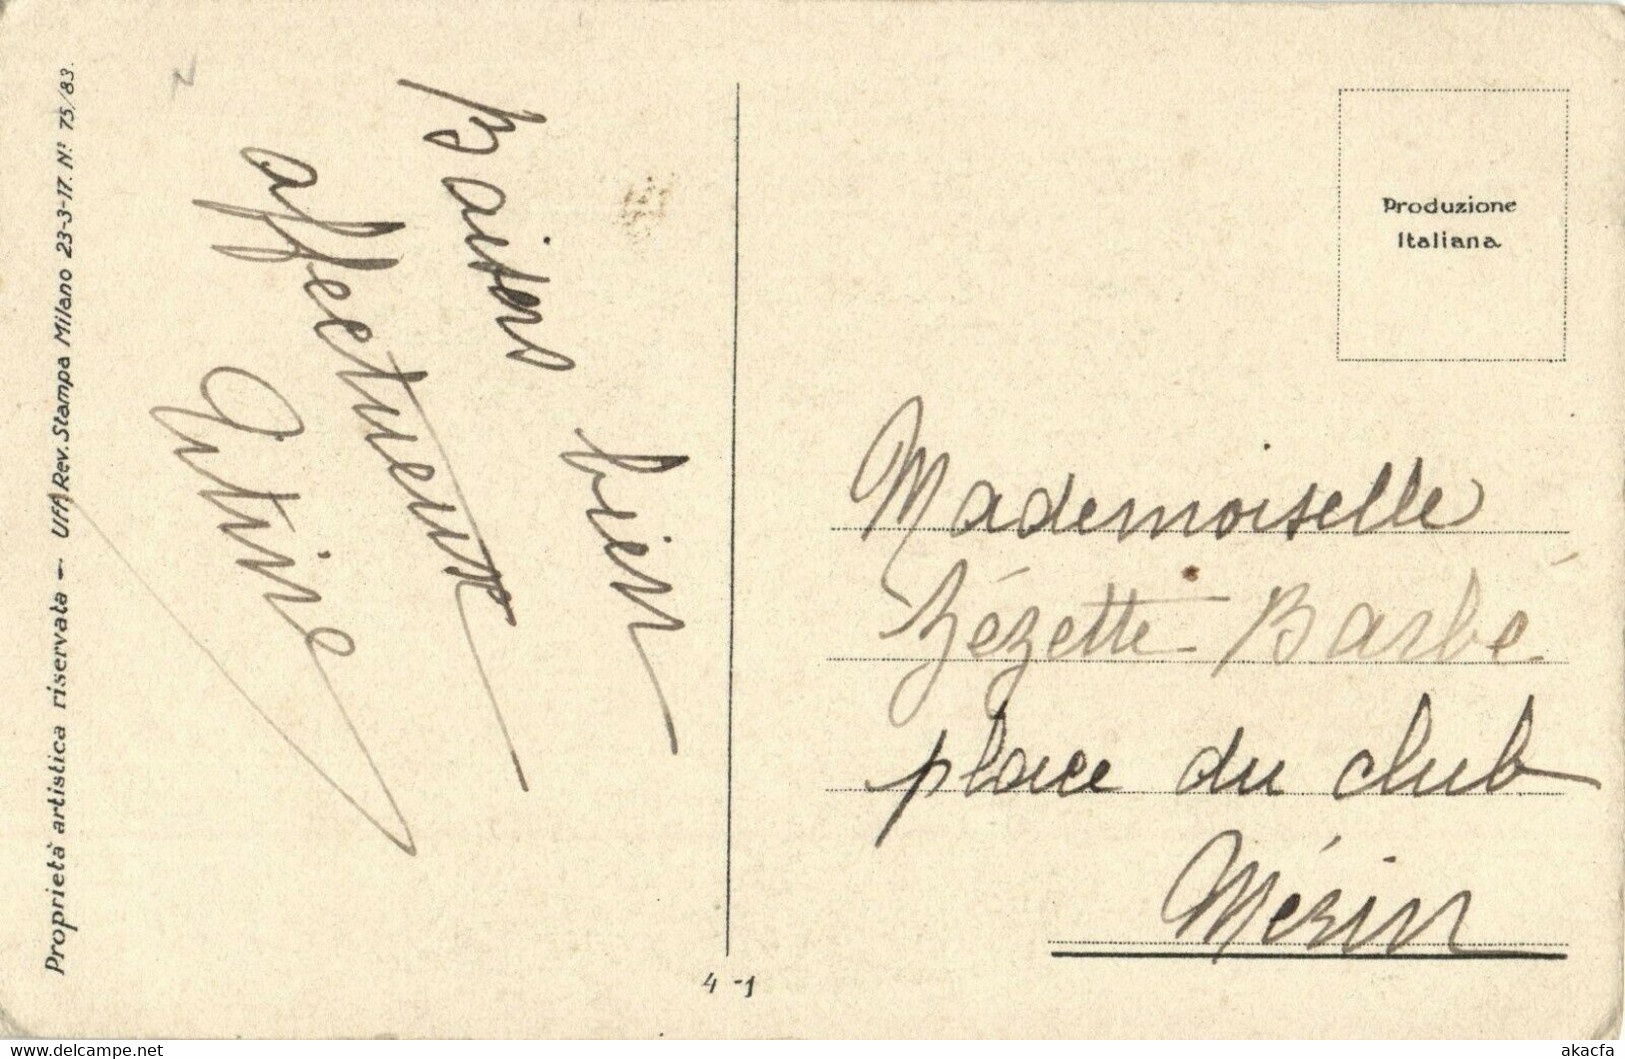 Proprietà artistica riservata - Uff. Rev. Stampa Milano 23-3-17. N.º 75/83.
Baisers bien
affectueux
Produzione
Italiana
Mademoiselle
Zézette Barbé
place du club
Mézin
4-1
akacfa